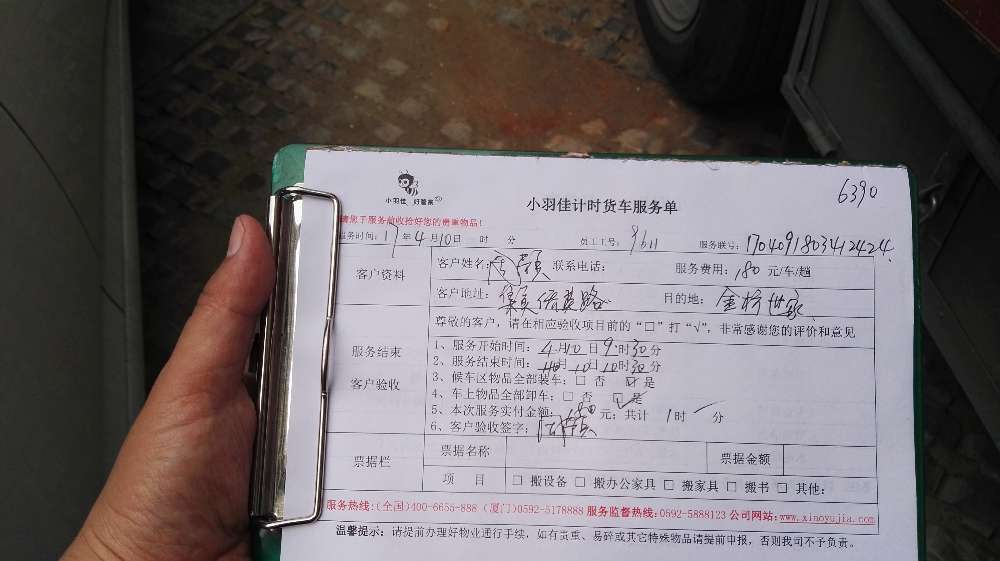 6390
小羽佳 好管家
小羽佳计时货车服务单
请您于服务前收拾好您的贵重物品!
服务时间: 17 年 4 月 10 日 时 分 员工工号: 9611 服务联号: 170409180341 2424
客户资料
客户姓名: 联系电话: 服务费用: 180 元/车/趟
客户地址: 集美 路 目的地: 金桥世家
尊敬的客户,请在相应验收项目前的“□”打“√”,非常感谢您的评价和意见
服务结束
客户验收
1、服务开始时间: 4 月 10 日 9 时 30 分
2、服务结束时间: 4 月 10 日 10 时 30 分
3、候车区物品全部装车: □ 否 ☑ 是
4、车上物品全部卸车: □ 否 ☑ 是
5、本次服务实付金额: 180 元; 共计 1 时 分
6、客户验收签字:
票据栏
票据名称 票据金额
项 目 □ 搬设备 □ 搬办公家具 □ 搬家具 □ 搬书 □ 其他:
服务热线:(全国)400-6655-888 (厦门)0592-5178888 服务监督热线:0592-5888123 公司网站:www.xiaoyujia.com
温馨提示: 请提前办理好物业通行手续,如有贵重、易碎或其它特殊物品请提前申报,否则我司不予负责。